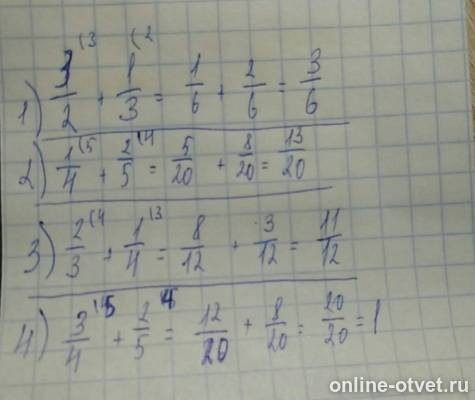 1) 1/2 (3 + 1/3 (2 = 1/6 + 2/6 = 3/6
2) 1/4 (5 + 2/5 (4 = 5/20 + 8/20 = 13/20
3) 2/3 (4 + 1/4 (3 = 8/12 + 3/12 = 11/12
4) 3/4 (5 + 2/5 = 12/20 + 8/20 = 20/20 = 1
online-otvet.ru